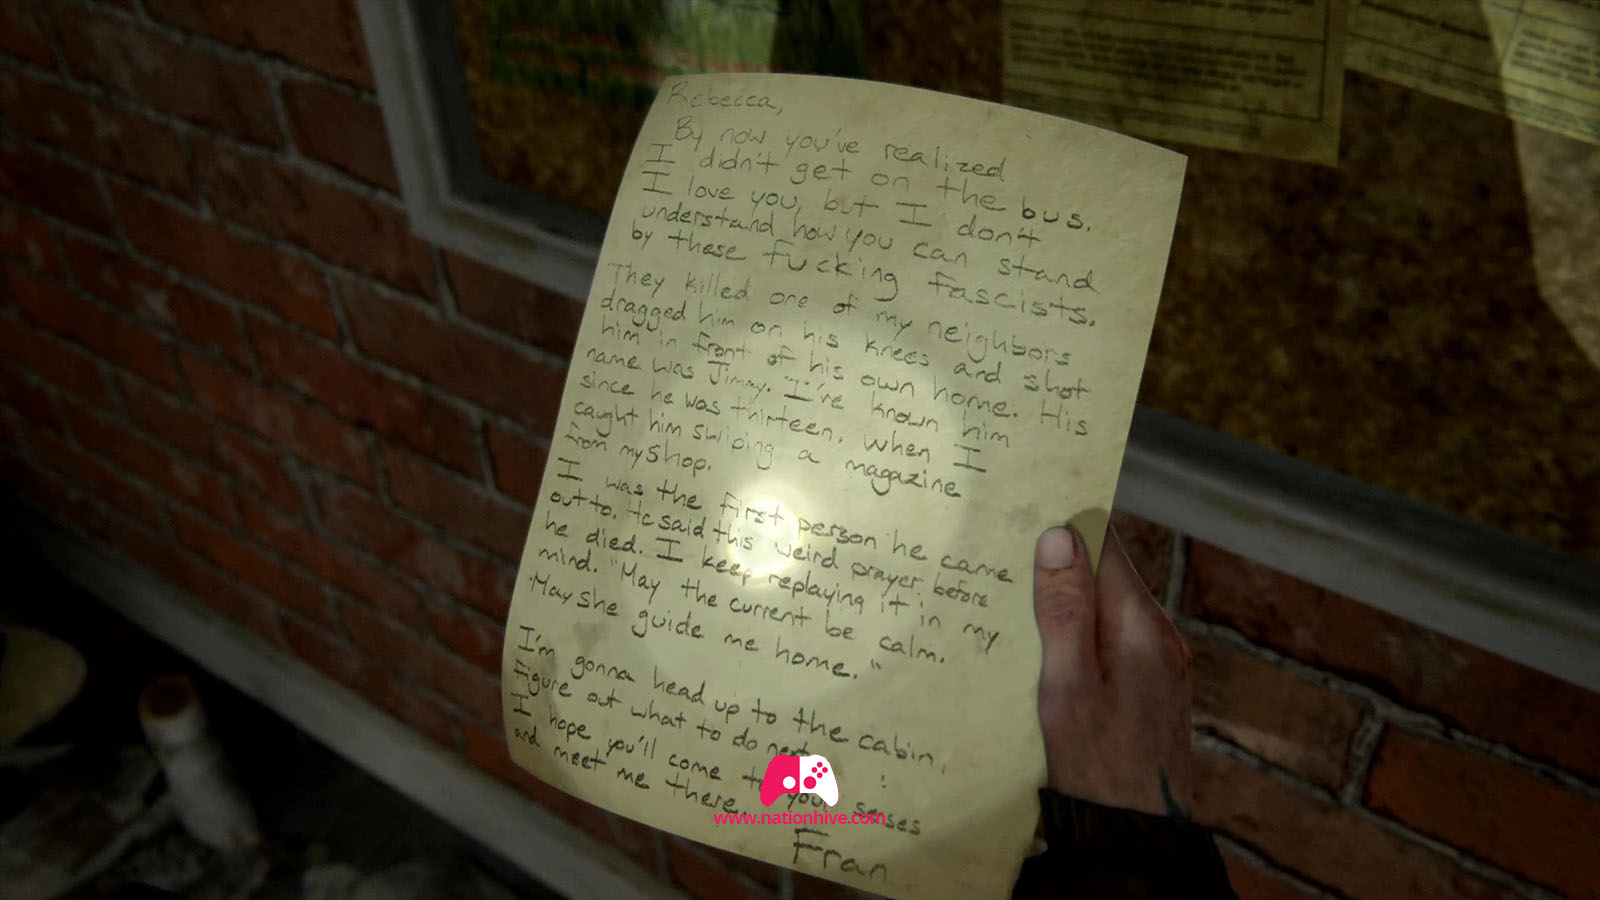 Rebecca,
By now you've realized
I didn't get on the bus.
I love you, but I don't
understand how you can stand
by these fucking fascists.
They killed one of my neighbors
dragged him on his knees and shot
him in front of his own home. His
name was Jimmy. I've known him
since he was thirteen, when I
caught him swiping a magazine
from my shop.
I was the first person he came
out to. He said this weird prayer before
he died. I keep replaying it in my
mind. "May the current be calm.
May she guide me home."
I'm gonna head up to the cabin,
figure out what to do next
I hope you'll come to your senses
and meet me there.
Fran
www.nationhive.com